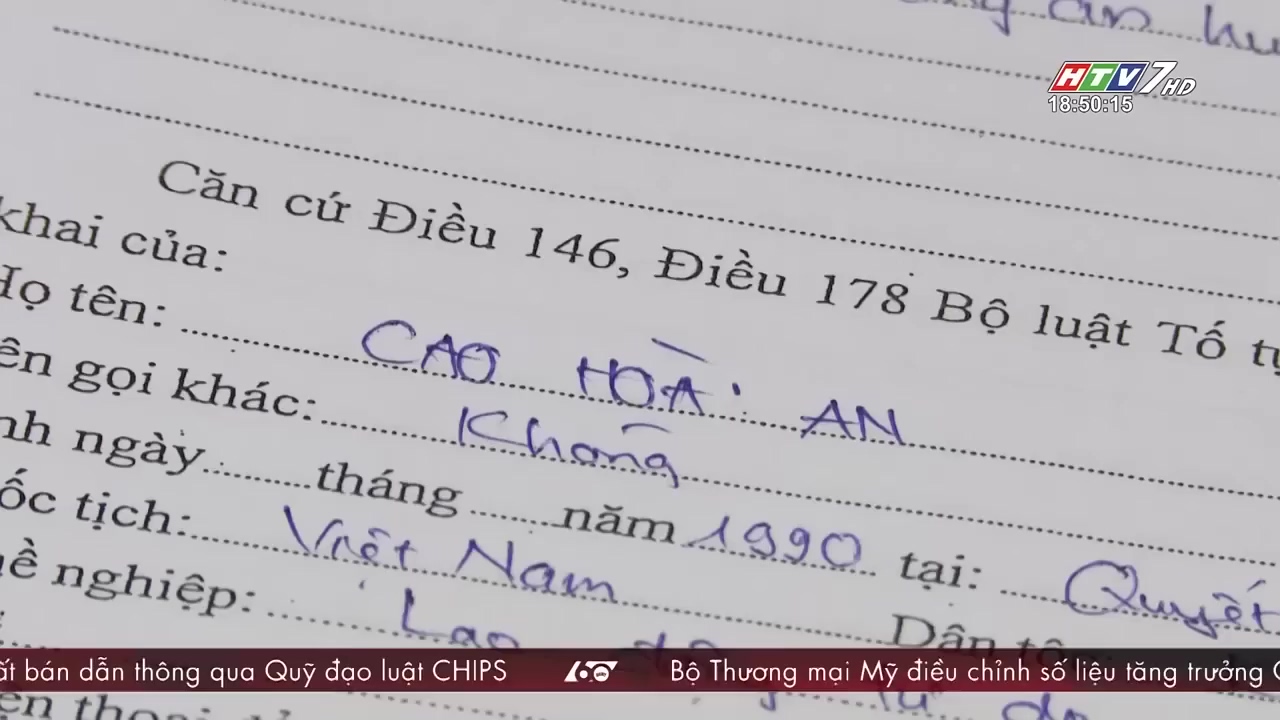 HTV7 HD
18:50:15
Căn cứ Điều 146, Điều 178 Bộ luật Tố
khai của:
Họ tên: CAO HOÀI AN
gọi khác: Không
ngày tháng năm 1990 tại: Quyết
tịch: Việt Nam
nghiệp: Lao Dân
bán dẫn thông qua Quỹ đạo luật CHIPS
60
Bộ Thương mại Mỹ điều chỉnh số liệu tăng trưởng